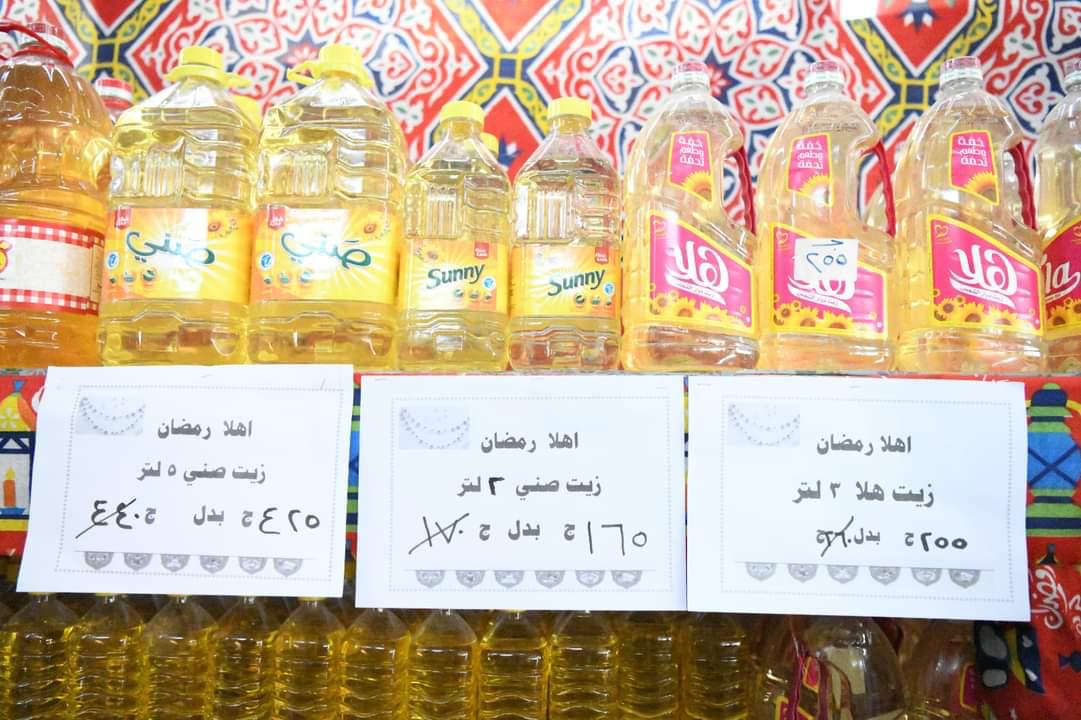 صني
صني
Sunny
Sunny
خفة
وطعم
تحفة
هلا
خفة
وطعم
تحفة
٢٠٠
خفة
وطعم
تحفة
هلا
اهلا رمضان
زيت صني ٥ لتر
٤٢٥ ج بدل ٤٤٠ ج
اهلا رمضان
زيت صني ٢ لتر
١٦٥ ج بدل ١٧٠ ج
اهلا رمضان
زيت هلا ٣ لتر
٢٠٠ ج بدل ٢٦٠ ج
رمضان